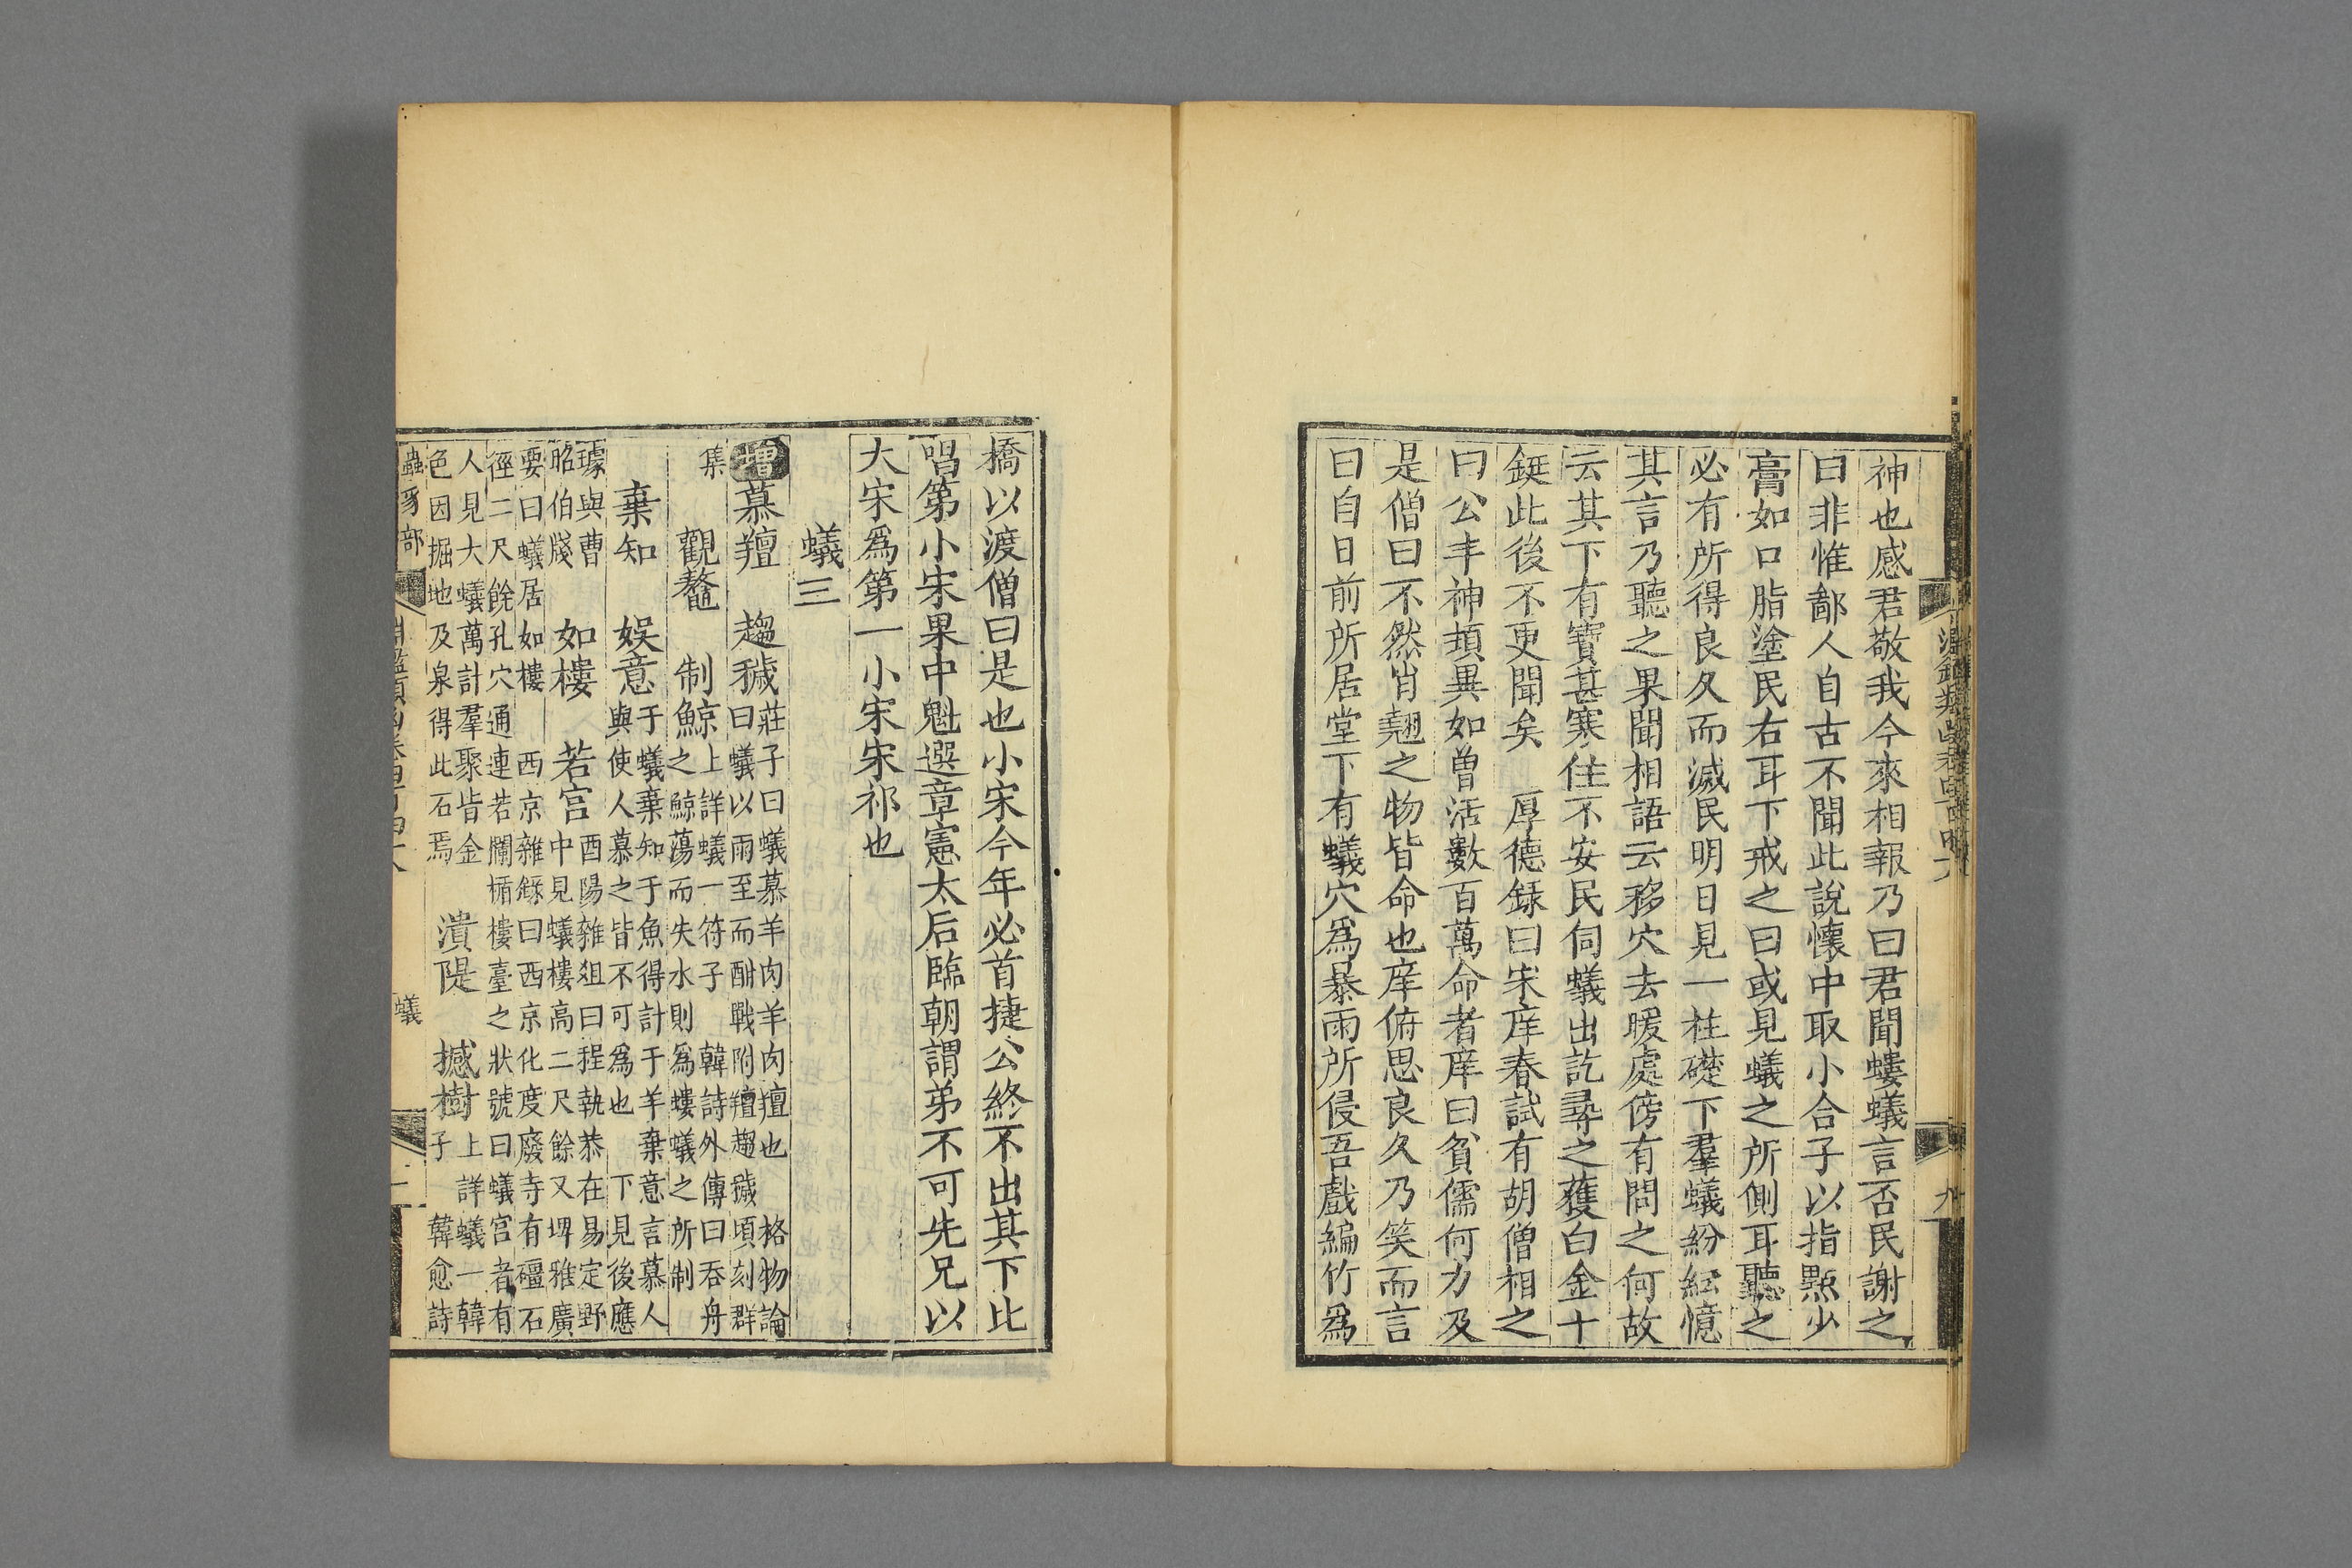 神也感君敬我今來相報乃曰君聞螻蟻言否民謝之
曰非惟鄙人自古不聞此說懷中取小合子以指點少
膏如口脂塗民右耳下戒之曰或見蟻之所側耳聽之
必有所得良久而滅民明日見一柱礎下羣蟻紛紜憶
其言乃聽之果聞相語云移穴去暖處傍有問之何故
云其下有寶甚寒住不安民伺蟻出訖尋之獲白金十
鋌此後不更聞矣 厚德錄曰宋庠春試有胡僧相之
曰公丰神頓異如曾活數百萬命者庠曰貧儒何力及
是僧曰不然肖翹之物皆命也庠俯思良久乃笑而言
曰自日前所居堂下有蟻穴爲暴雨所侵吾戲編竹爲
橋以渡僧曰是也小宋今年必首捷公終不出其下比
唱第小宋果中魁選章憲太后臨朝謂弟不可先兄以
大宋爲第一小宋宋祁也
蟻三
增慕羶 趨穢莊子曰蟻慕羊肉羊肉羶也 格物論
曰蟻以雨至而酣戰附羶趨穢頃刻群
集 觀鼇 制鯨上詳蟻一符子 韓詩外傳曰吞舟
之鯨蕩而失水則爲螻蟻之所制
棄知 娛意于蟻棄知于魚得計于羊棄意言慕人
與使人慕之皆不可爲也 下見後應
璩與曹
昭伯牋 如樓 若宮酉陽雜俎曰程執恭在易定野
中見蟻樓高二尺餘又埤雅廣
要曰蟻居如樓 西京雜録曰西京化度廢寺有礓石
徑二尺餘孔穴通連若欄楯樓臺之狀號曰蟻宮者有
人見大蟻萬計羣聚皆金
色因掘地及泉得此石焉 潰隄 撼樹上詳蟻一韓
子 韓愈詩
蟲豸部
蟻